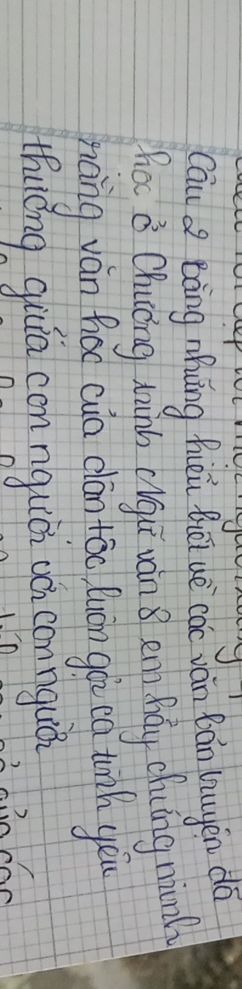 Câu 2 Bằng những hiểu biết về các văn bản truyện đã
học ở Chương trình Ngữ văn 8 em hãy chứng minh
rằng văn học của dân tộc luôn gợi ca tình yêu
thương giữa con người với con người